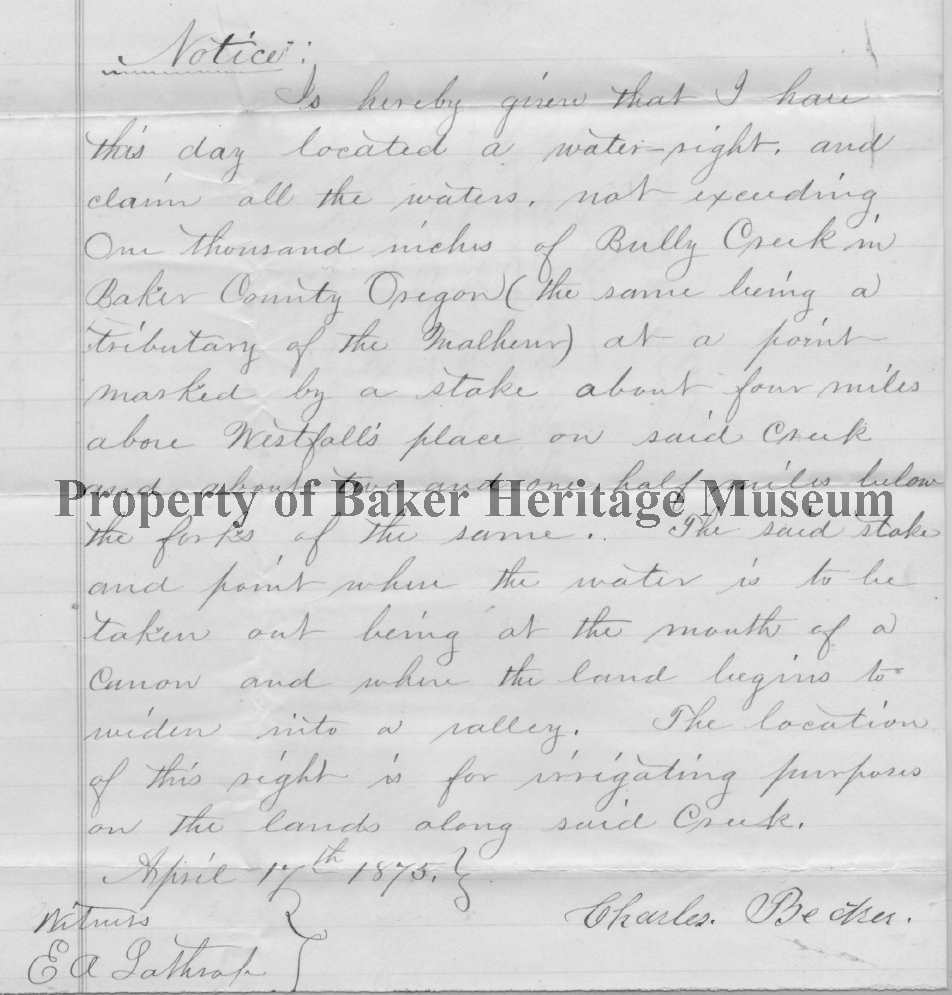 Notice:
Is hereby given that I have
this day located a water-right, and
claim all the waters, not exceeding
One thousand inches of Bully Creek in
Baker County Oregon (the same being a
tributary of the Malheur) at a point
marked by a stake about four miles
above Westfall's place on said Creek
and about two and one half miles below
Property of Baker Heritage Museum
the forks of the same. The said stake
and point where the water is to be
taken out being at the mouth of a
Canon and where the land begins to
widen into a valley. The location
of this right is for irrigating purposes
on the lands along said Creek.
April 17th 1875.
Witness
Charles. Becker.
E A Lathrop